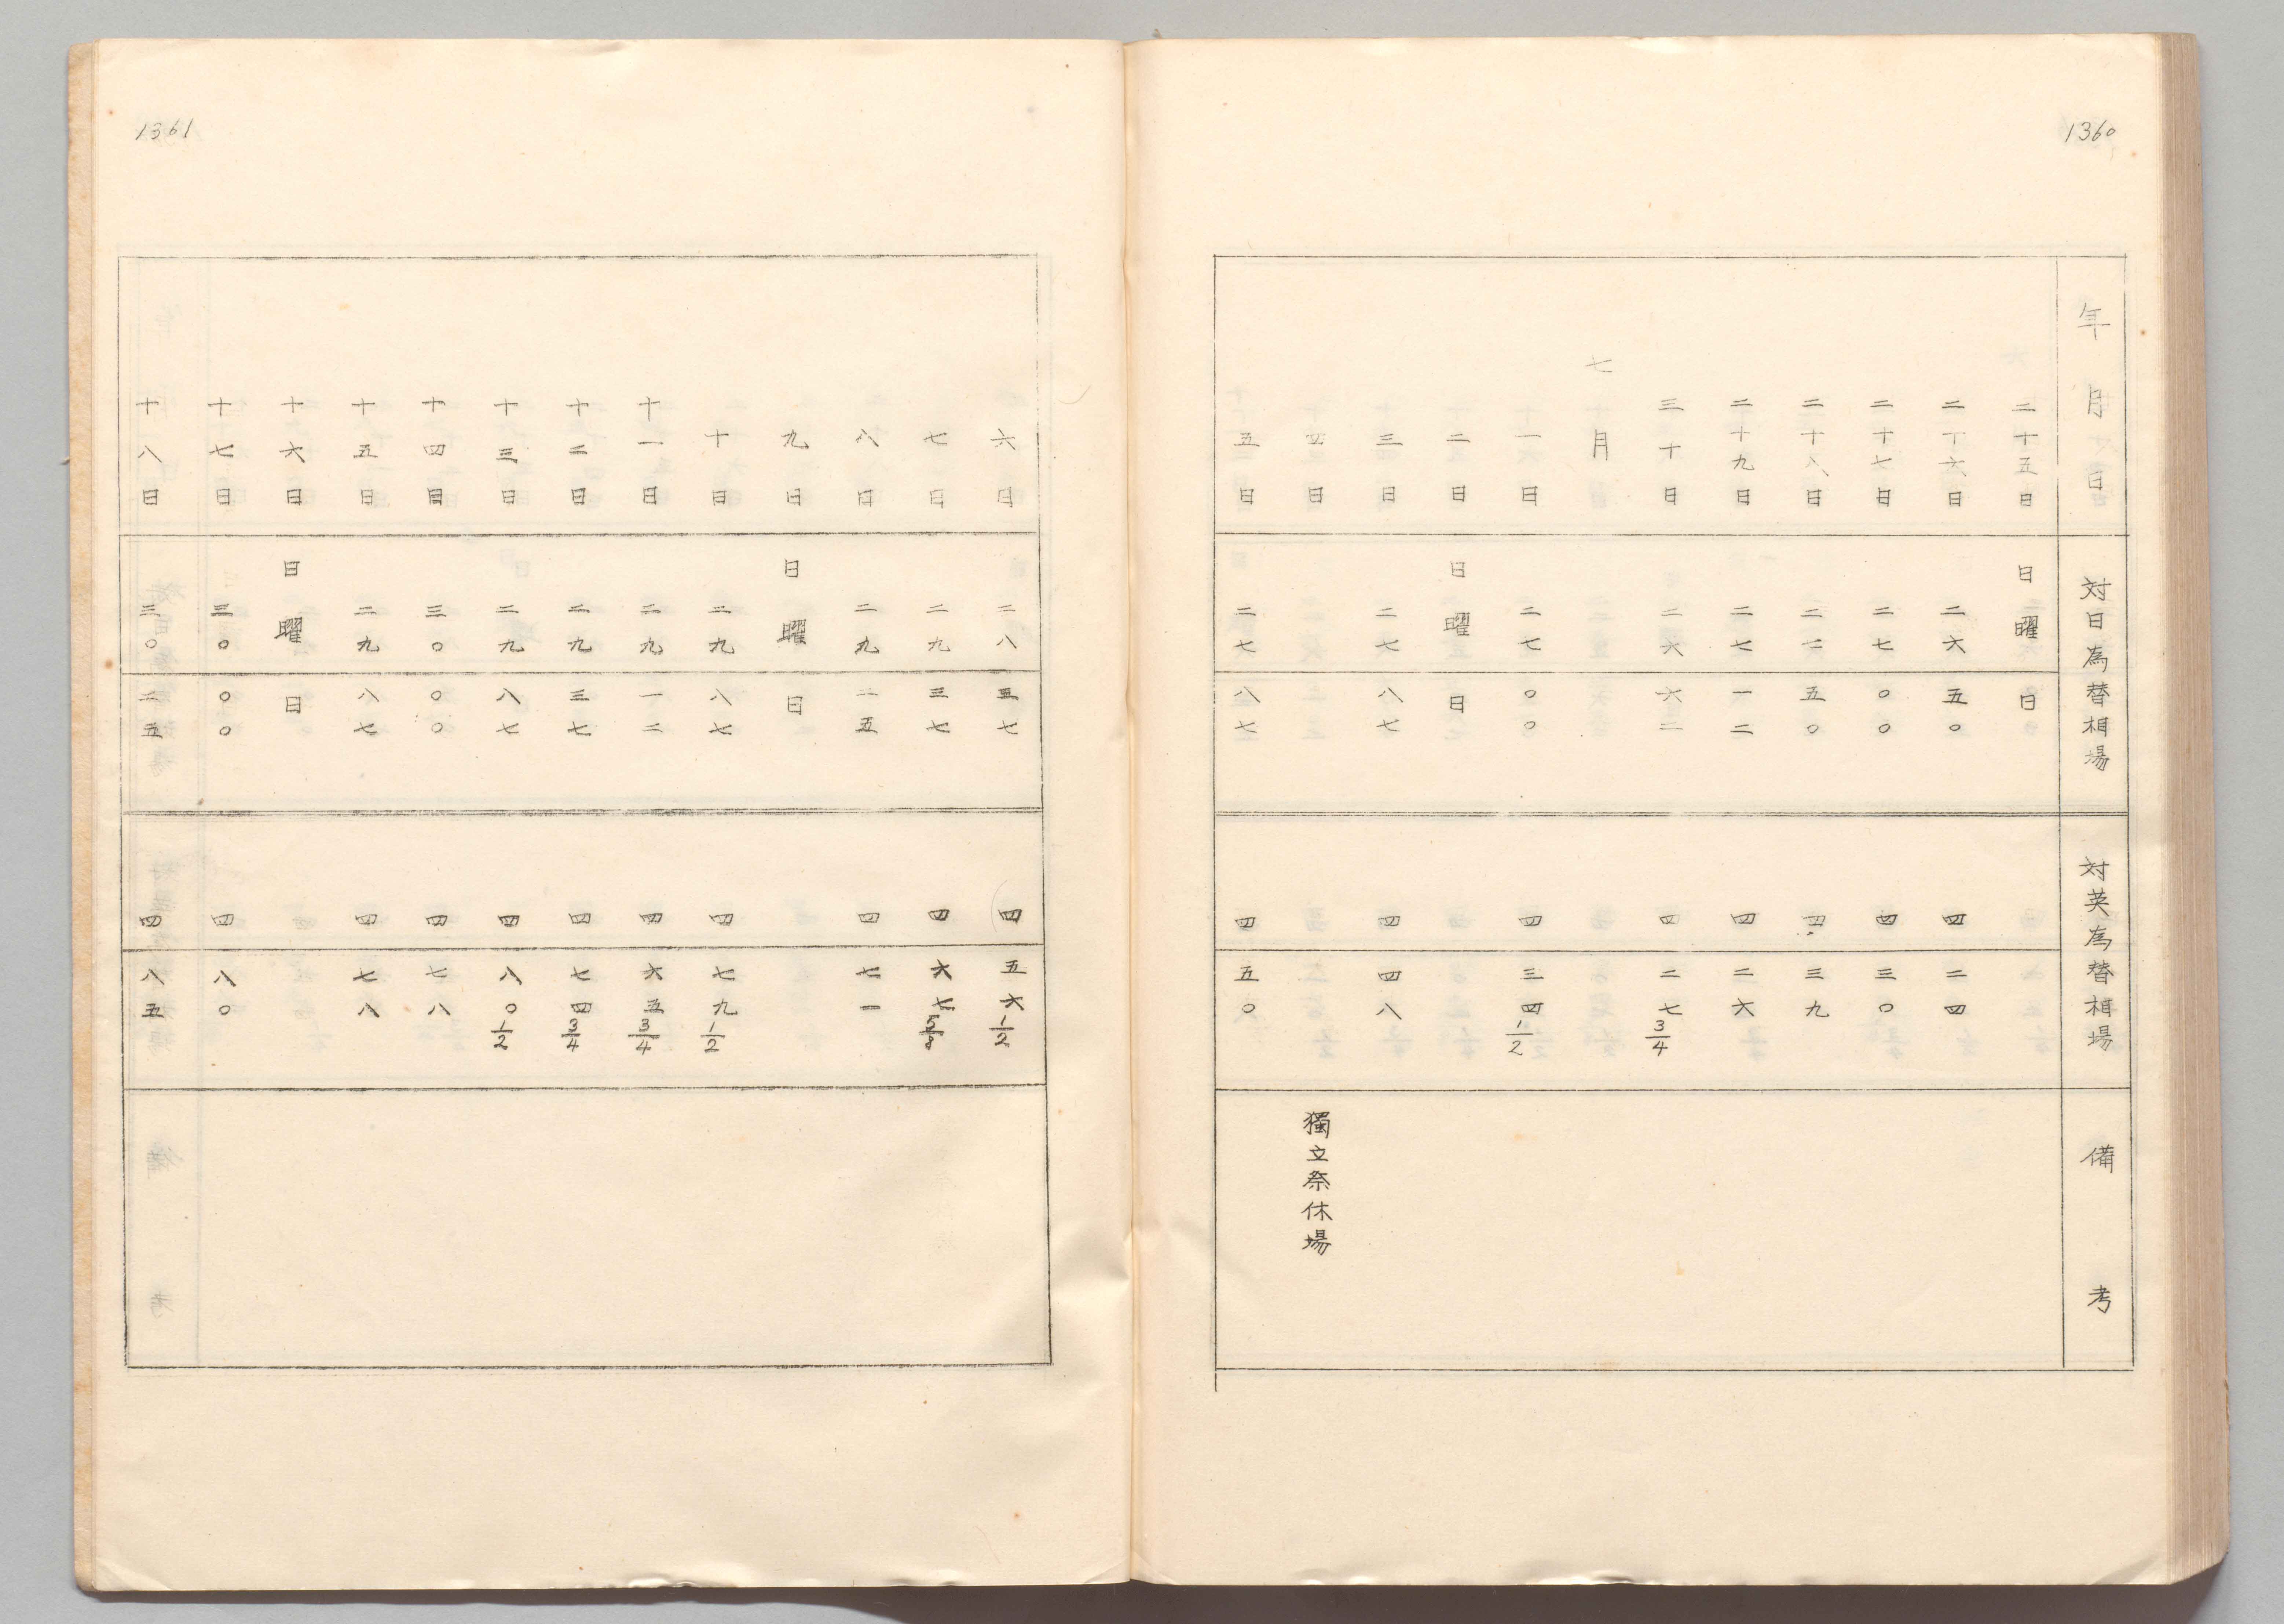 1360
年月日 対日為替相場 対英為替相場 備考
二十五日 日曜日
二十六日 二六 五〇 四 二四
二十七日 二七 〇〇 四 三〇
二十八日 二七 五〇 四 三九
二十九日 二七 一二 四 二六
三十日 二六 六二 四 二七 3/4
七月
一日 二七 〇〇 四 三四 1/2
二日 日曜日
三日 二七 八七 四 四八
四日 獨立祭休場
五日 二七 八七 四 五〇
1361
六日 二八 三七 四 五六 1/2
七日 二九 三七 四 六七 5/8
八日 二九 二五 四 七一
九日 日曜日
十日 二九 八七 四 七九 1/2
十一日 二九 一二 四 六五 3/4
十二日 二九 三七 四 七四 3/4
十三日 二九 八七 四 八〇 1/2
十四日 三〇 〇〇 四 七八
十五日 二九 八七 四 七八
十六日 日曜日
十七日 三〇 〇〇 四 八〇
十八日 三〇 二五 四 八五